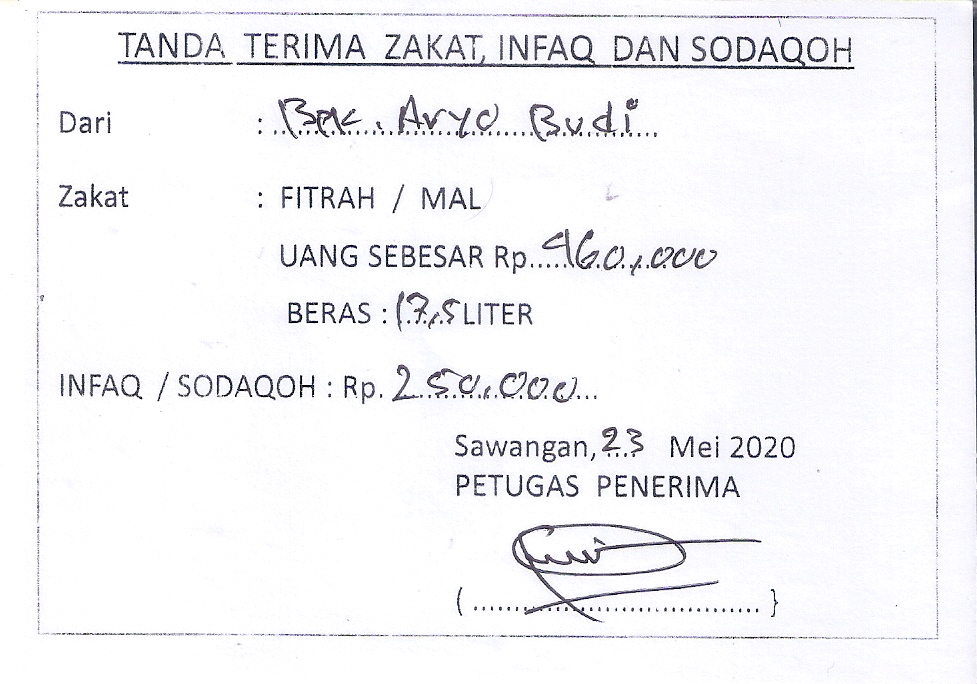 TANDA TERIMA ZAKAT, INFAQ DAN SODAQOH
Dari : Bpk. Aryo Budi
Zakat : FITRAH / MAL
UANG SEBESAR Rp. 960,000
BERAS : 17,5 LITER
INFAQ / SODAQOH : Rp. 250,000
Sawangan, 23 Mei 2020
PETUGAS PENERIMA
( .................................... }